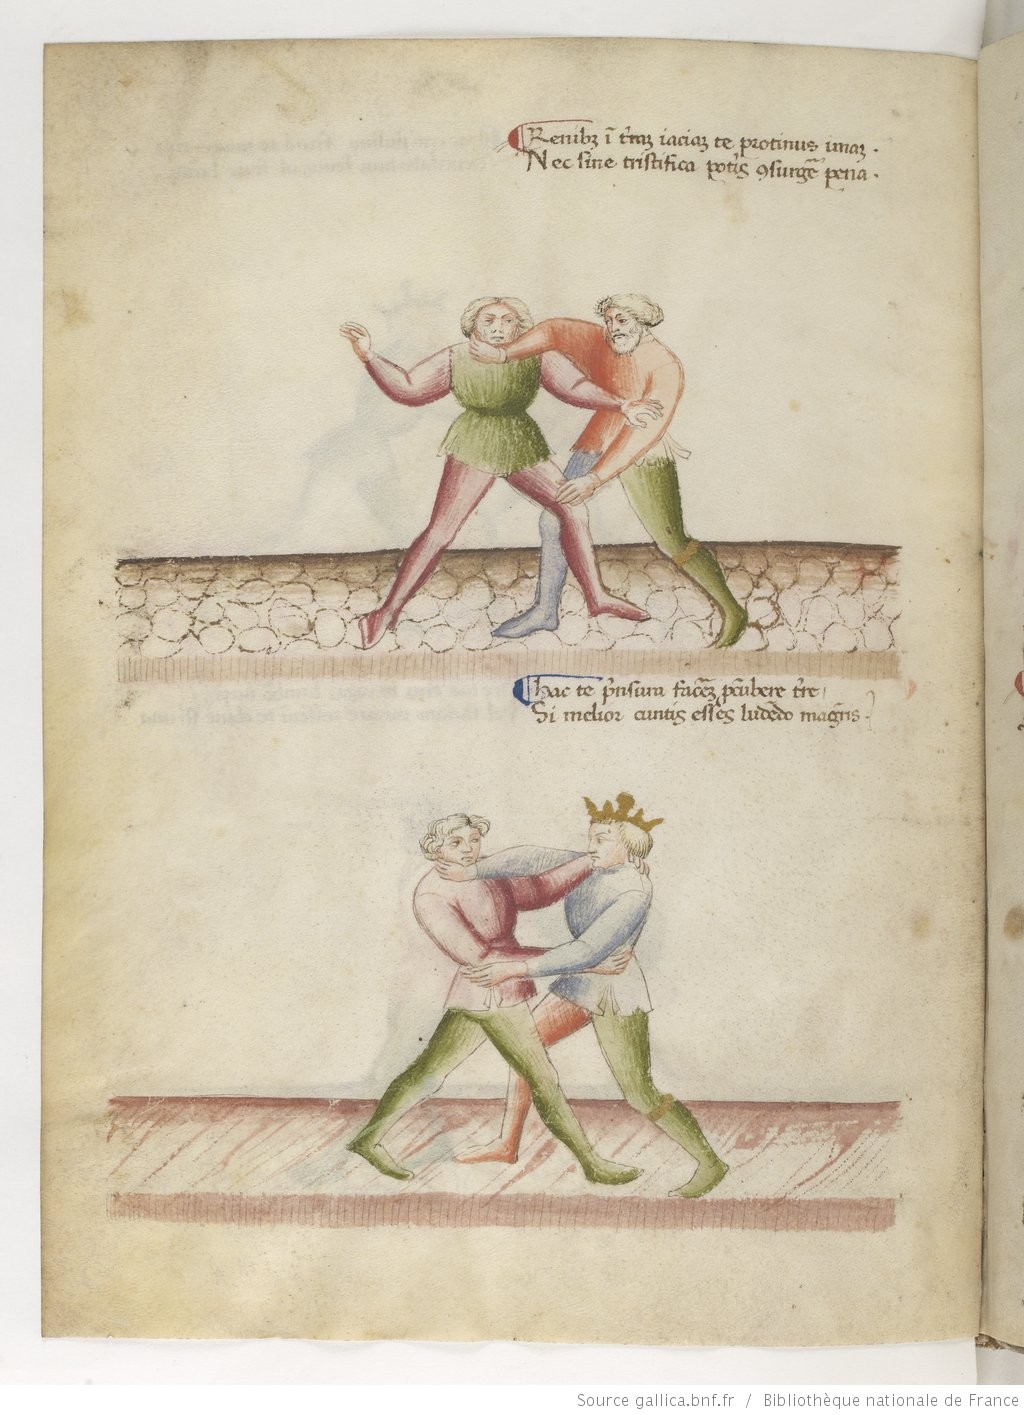 Renibꝫ ī t̄raꝫ iaciaꝫ te protinus imaꝫ .
Nec sine tristifica pot̄is ꝯsurgē pena .
hac te p̄nsura faciēꝫ p̄cūbere t̄re
Si melior cuntis esses ludēdo mag̅ris .
Source gallica.bnf.fr / Bibliothèque nationale de France